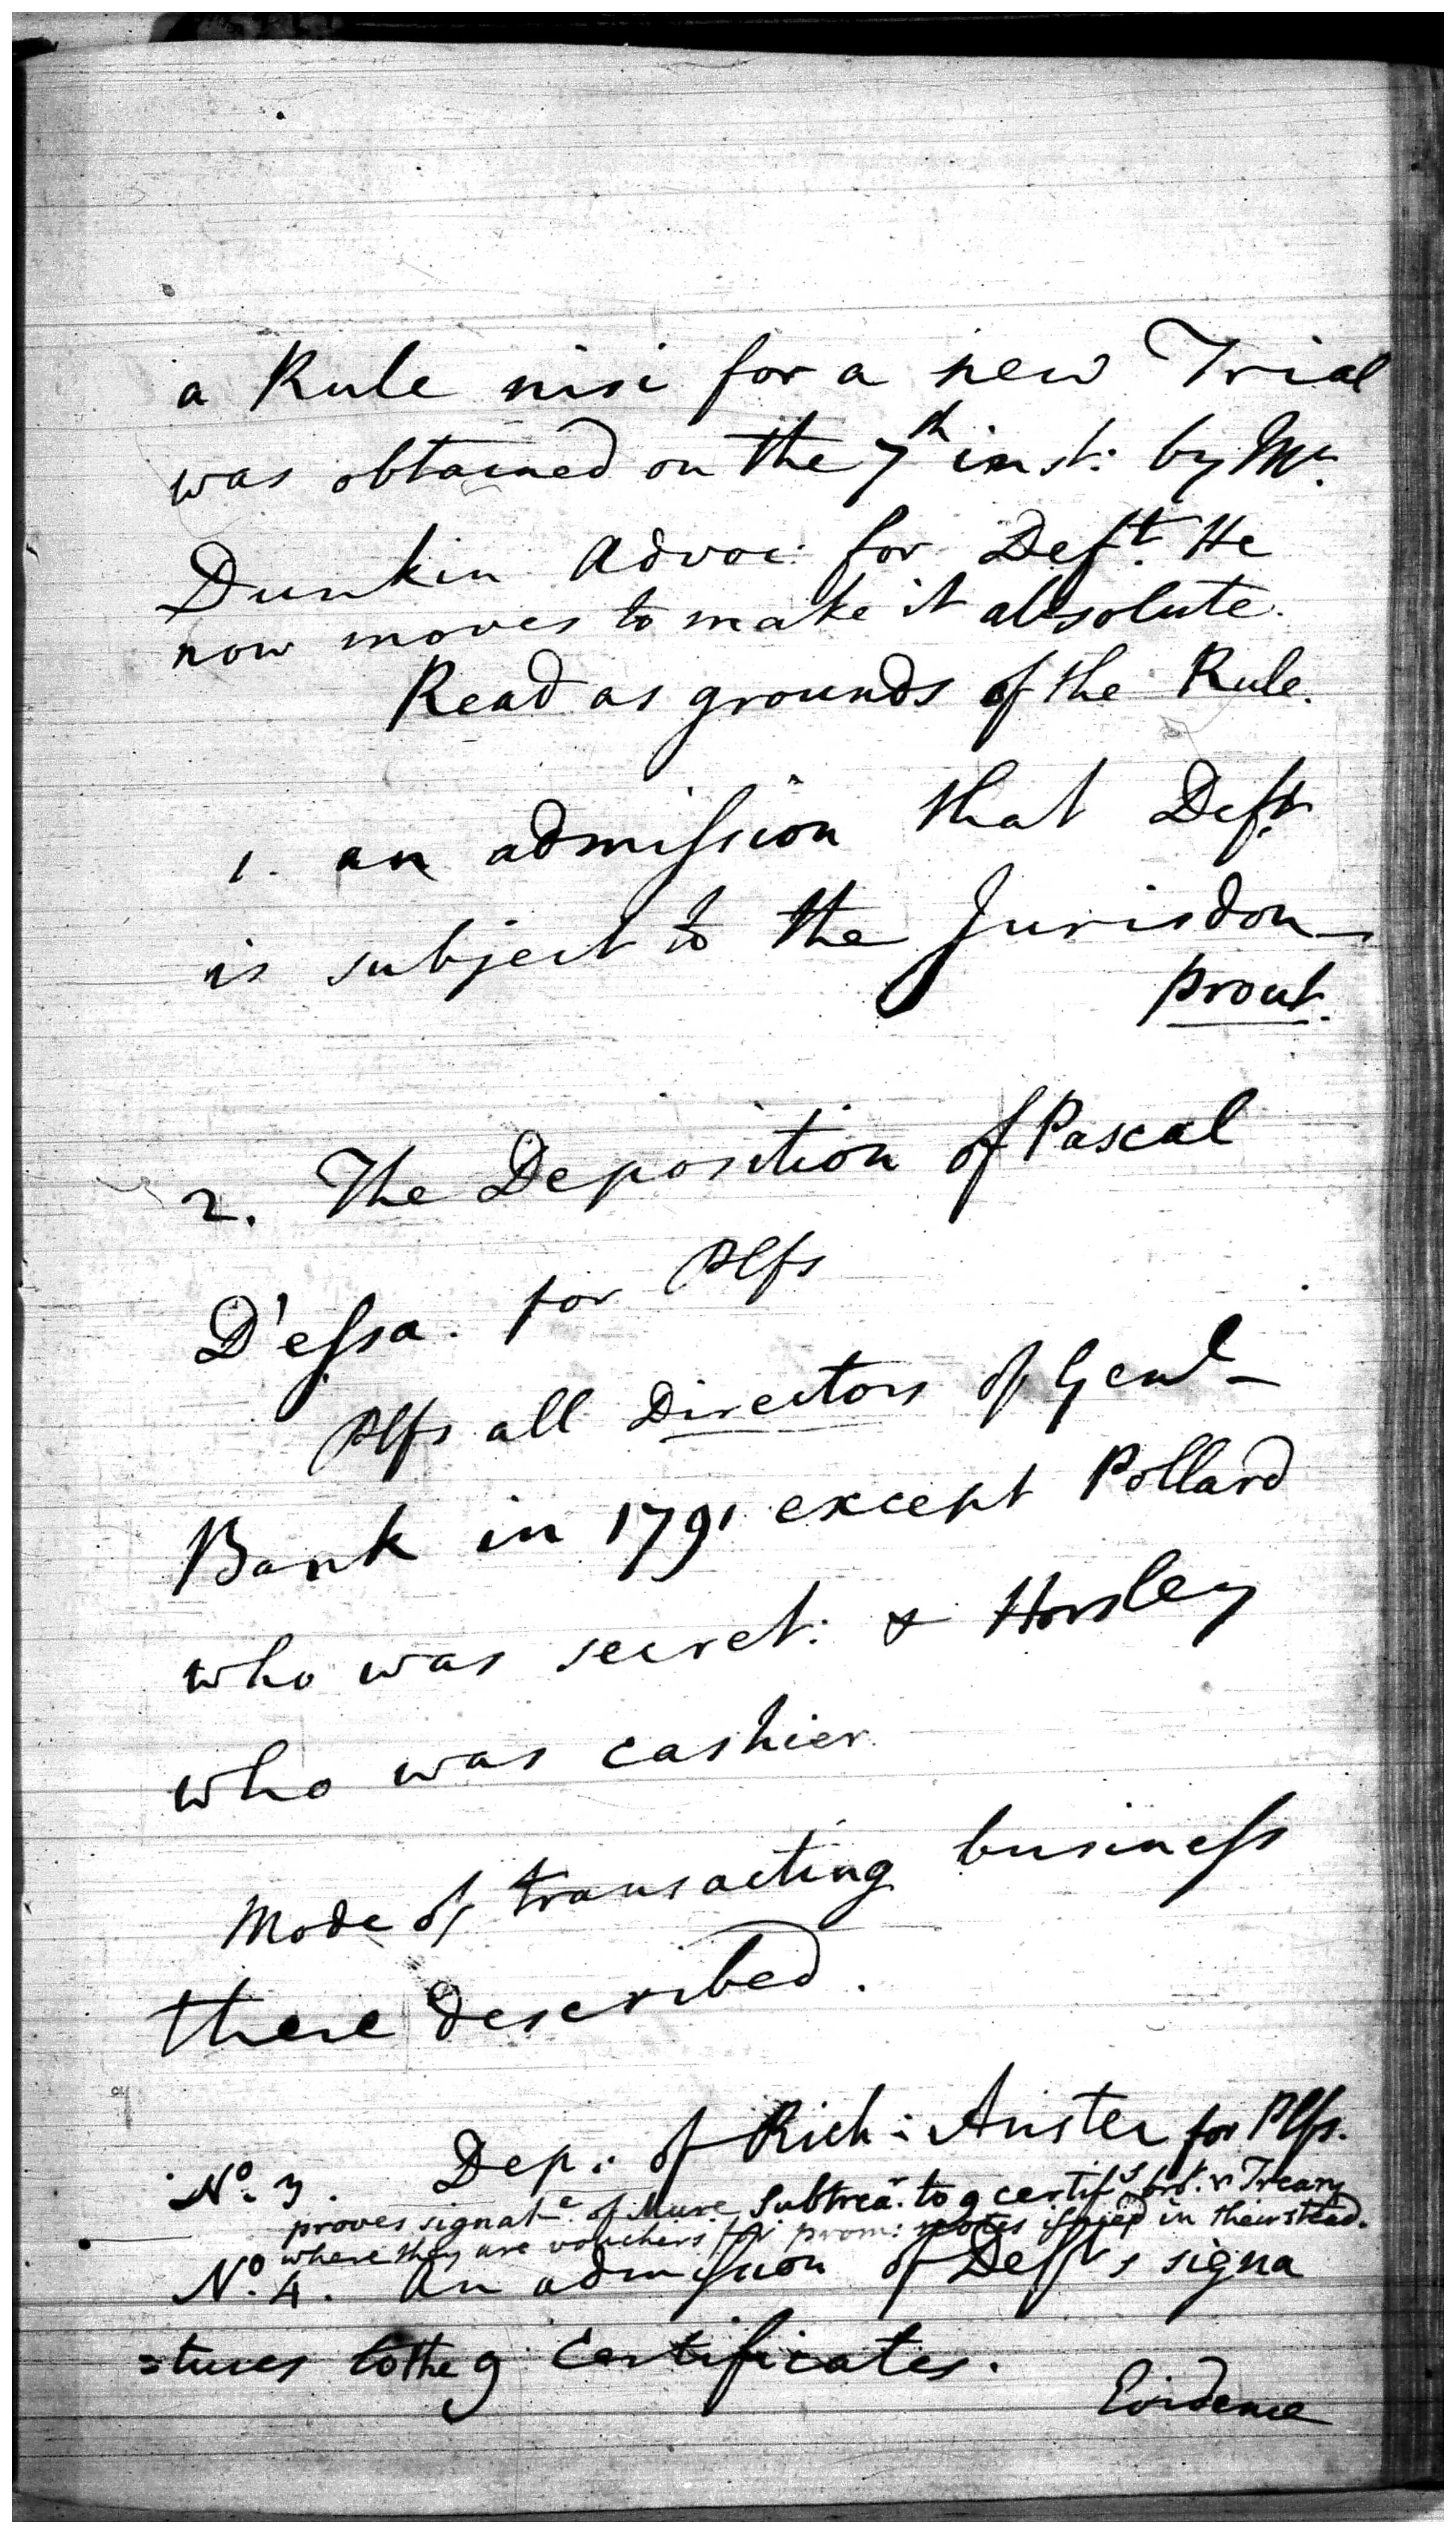 a Rule nisi for a new Trial
was obtained on the 7th inst: by Mr.
Dunkin Advoc: for Deft. He
now moves to make it absolute.
Read as grounds of the Rule.
1. an admission that Deft.
is subject to the Jurisdon
prout.
2. The Deposition of Pascal
D'essa. for Plfs
Plfs all Directors of Genl
Bank in 1791 except Pollard
who was secret: & Horsley
who was cashier.
Mode of transacting business
there described.
No. 3. Dep: of Rich: Auster for Plfs.
proves signate. of Mure, Subtrear. to 9 certifs brt. Treary
where they are vouchers for prom: notes issued in their stead.
No. 4. An admission of Deft's signa
=tures to the 9 Certificates.
Evidence